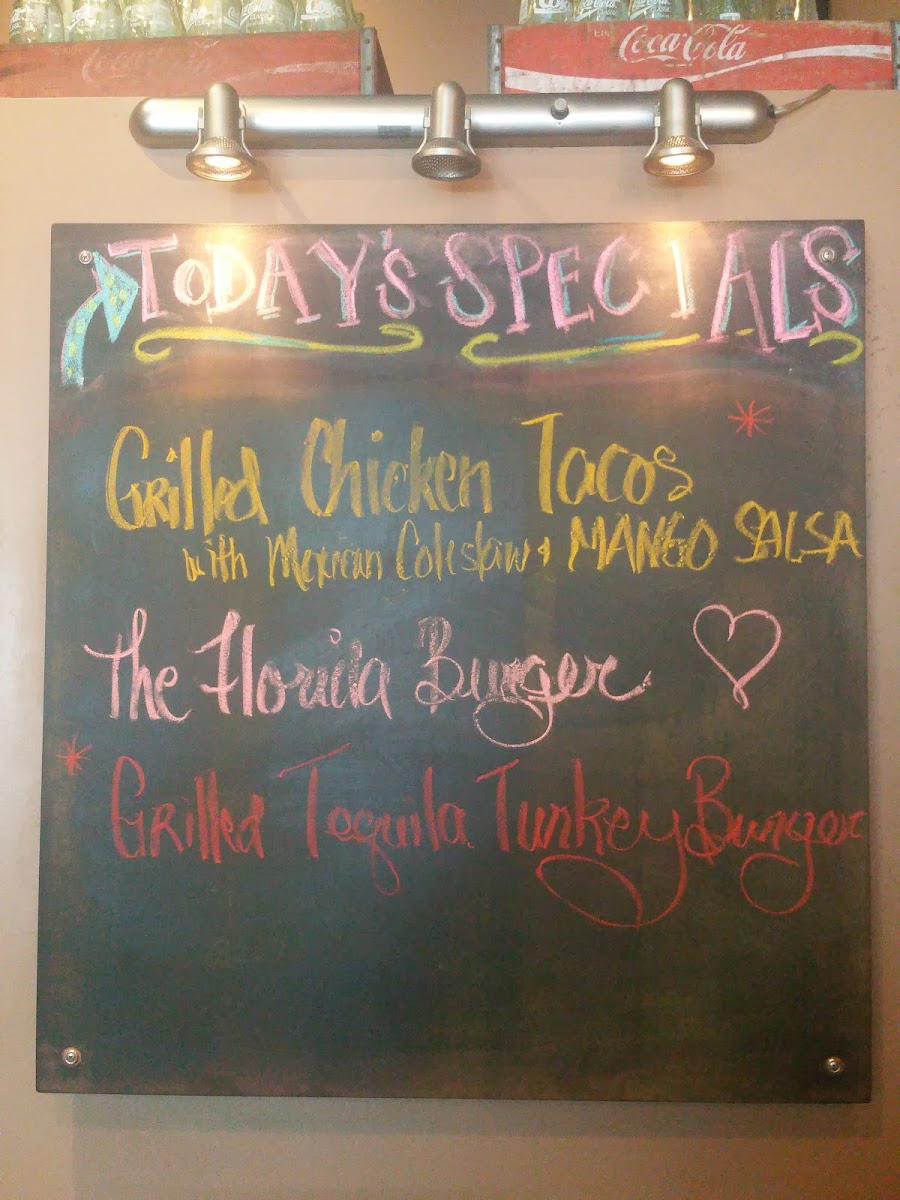 Coca-Cola
Coca-Cola
TODAY'S SPECIALS
Grilled Chicken Tacos
with Mexican Coleslaw & MANGO SALSA
The Florida Burger
Grilled Tequila Turkey Burger